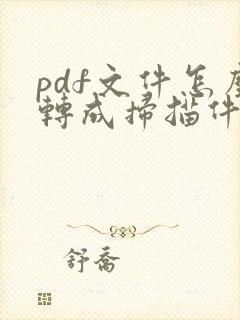 pdf文件怎麼
轉成掃描件
舒喬